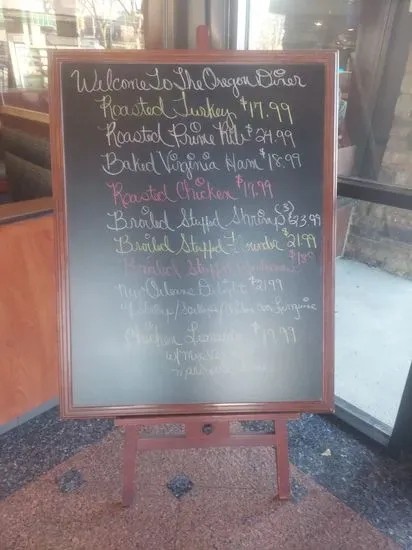 Welcome To The Oregon Diner
Roasted Turkey $17.99
Roasted Prime Rib $24.99
Baked Virginia Ham $18.99
Roasted Chicken $17.99
Broiled Stuffed Shrimp (3) $23.99
Broiled Stuffed Flounder $21.99
Broiled Stuffed
New Orleans Delight $21.99
w/ Shrimp/Sausage/ Linguine
Chicken $19.99